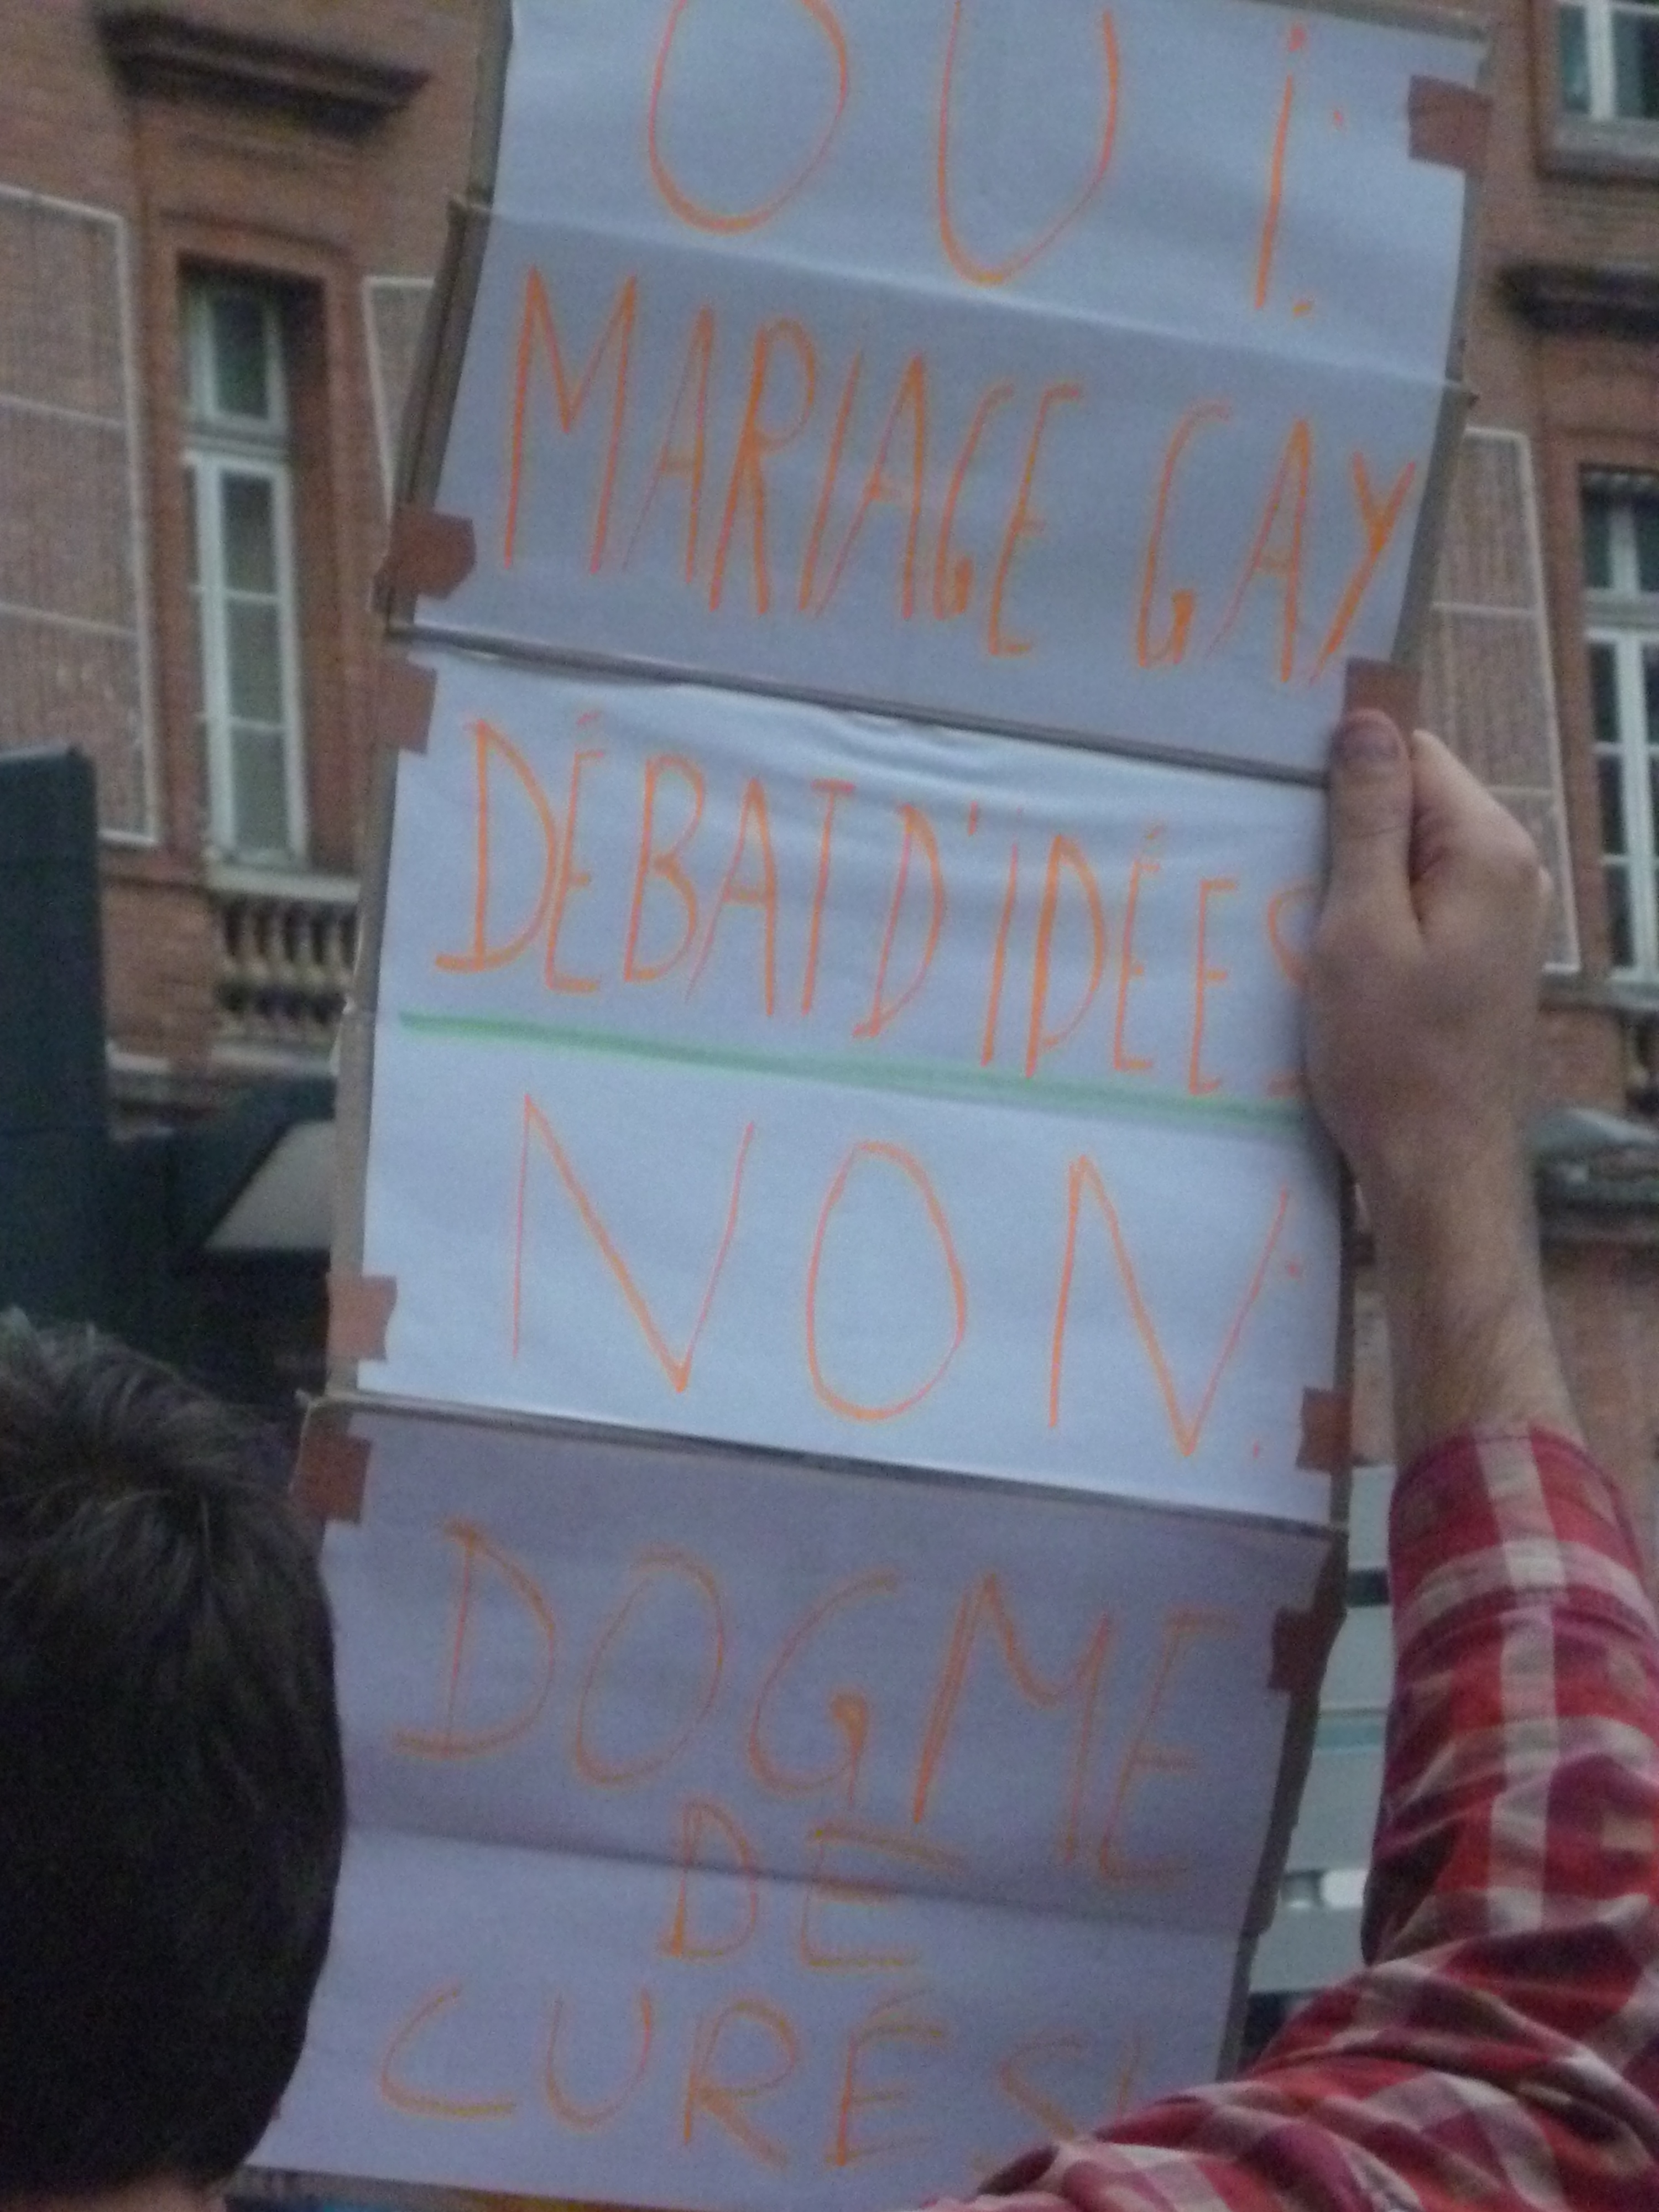 OUi:
MARIAGE GAY
DÉBAT D'IDÉES
NON:
DOGME
DE
CURÉS!